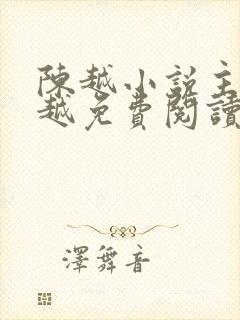 陳越小說主
越免費閱讀
澤舞音